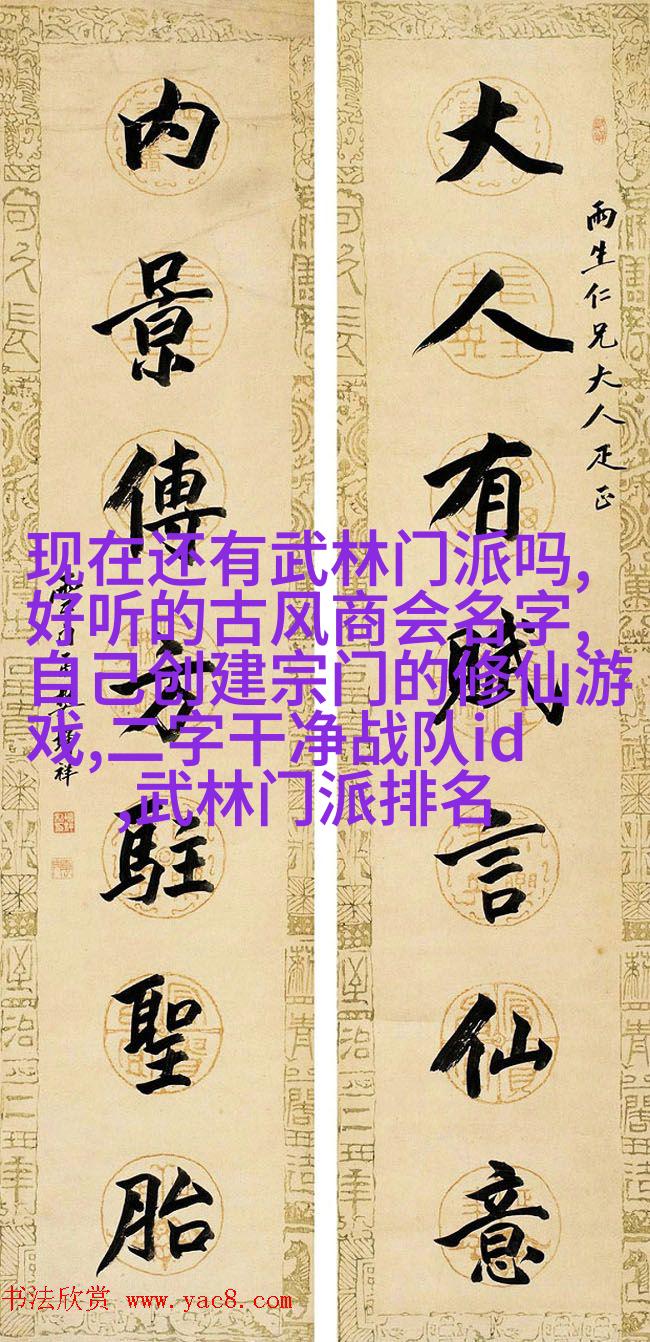 大人有賦言仙意
雨生仁兄大人疋正
内景傳方駐聖胎
祥
现在还有武林门派吗,
好听的古风商会名字,
自己创建宗门的修仙游
戏,二字干净战队id
,武林门派排名
书法欣赏 www.yac8.com